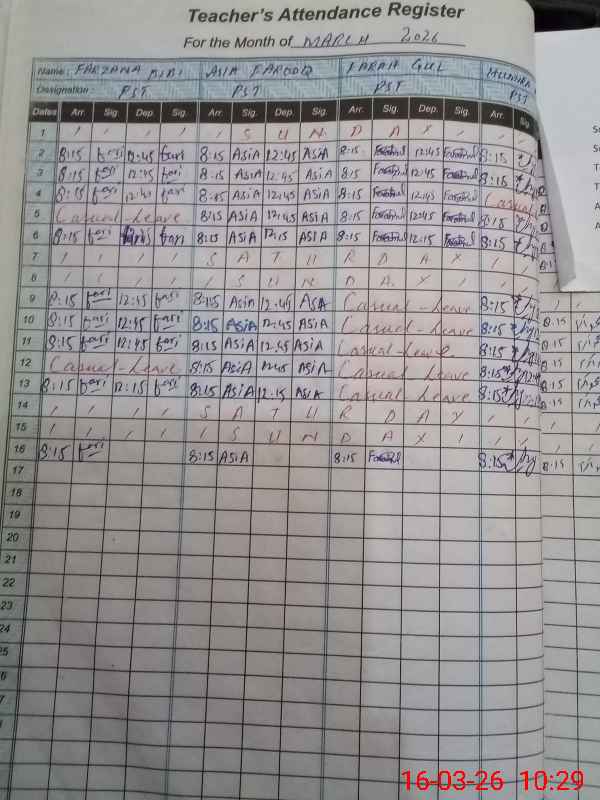 Teacher's Attendance Register
For the Month of MARCH 2026
Name: FARZANA BIBI ASIA FAROOQ FARAH GUL MUNIRA
Designation: PST PST PST PST
Dates Arr. Sig. Dep. Sig. Arr. Sig. Dep. Sig. Arr. Sig. Dep. Sig. Arr. Sig.
1 S U N D A Y
2 8:15 fari 12:45 fari 8:15 ASIA 12:45 ASIA 8:15 12:45 8:15
3 8:15 fari 12:45 fari 8:15 ASIA 12:45 ASIA 8:15 12:45 8:15
4 8:15 fari 12:45 fari 8:15 ASIA 12:45 ASIA 8:15 12:45 Casual
5 Casual-Leave 8:15 ASIA 12:45 ASIA 8:15 12:45 8:15
6 8:15 fari fari 8:15 ASIA 12:15 ASIA 8:15 12:15 8:15
7 S A T U R D A Y
8 S U N D A Y
9 8:15 fari 12:45 fari 8:15 Asia 12:45 ASA Casual-Leave 8:15
10 8:15 fari 12:45 fari 8:15 ASIA 12:45 ASIA Casual-Leave 8:15 8:15
11 8:15 fari 12:45 fari 8:15 ASIA 12:45 ASIA Casual-Leave 8:15 8:15
12 Casual-Leave 8:15 ASIA 12:45 ASIA Casual-Leave 8:15 8:15
13 8:15 fari 12:15 fari 8:15 ASIA 12:15 ASIA Casual-Leave 8:15 8:15
14 S A T U R D A Y
15 S U N D A Y
16 8:15 fari 8:15 ASIA 8:15 8:15 8:15
17
18
19
20
21
22
23
24
25
6
7
8
16-03-26 10:29